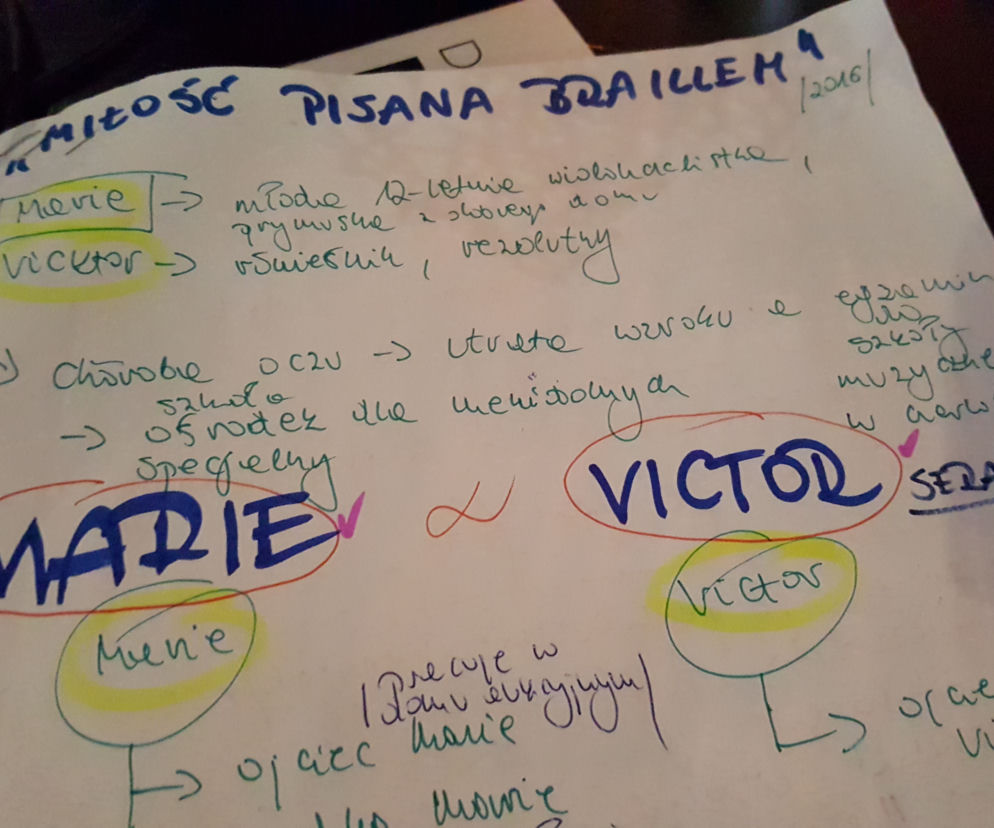 „MIŁOŚĆ PISANA BRAILLEM"
/2016/
Marie → młoda 12-letnia wiolonczelistka,
prymuska z dobrego domu
Vicktor → rówieśnik, rezolutny
choroba oczu → utrata wzroku a egzamin
do
szkoły
muzyczne
w
szkoła
→ ośrodek dla niewidomych
specjalny
MARIE ∝ VICTOR
SERA
Marie
Victor
/Pracuje w
domu aukcyjnym/
→ ojciec Marie
→ ojcie
Vi
Marie